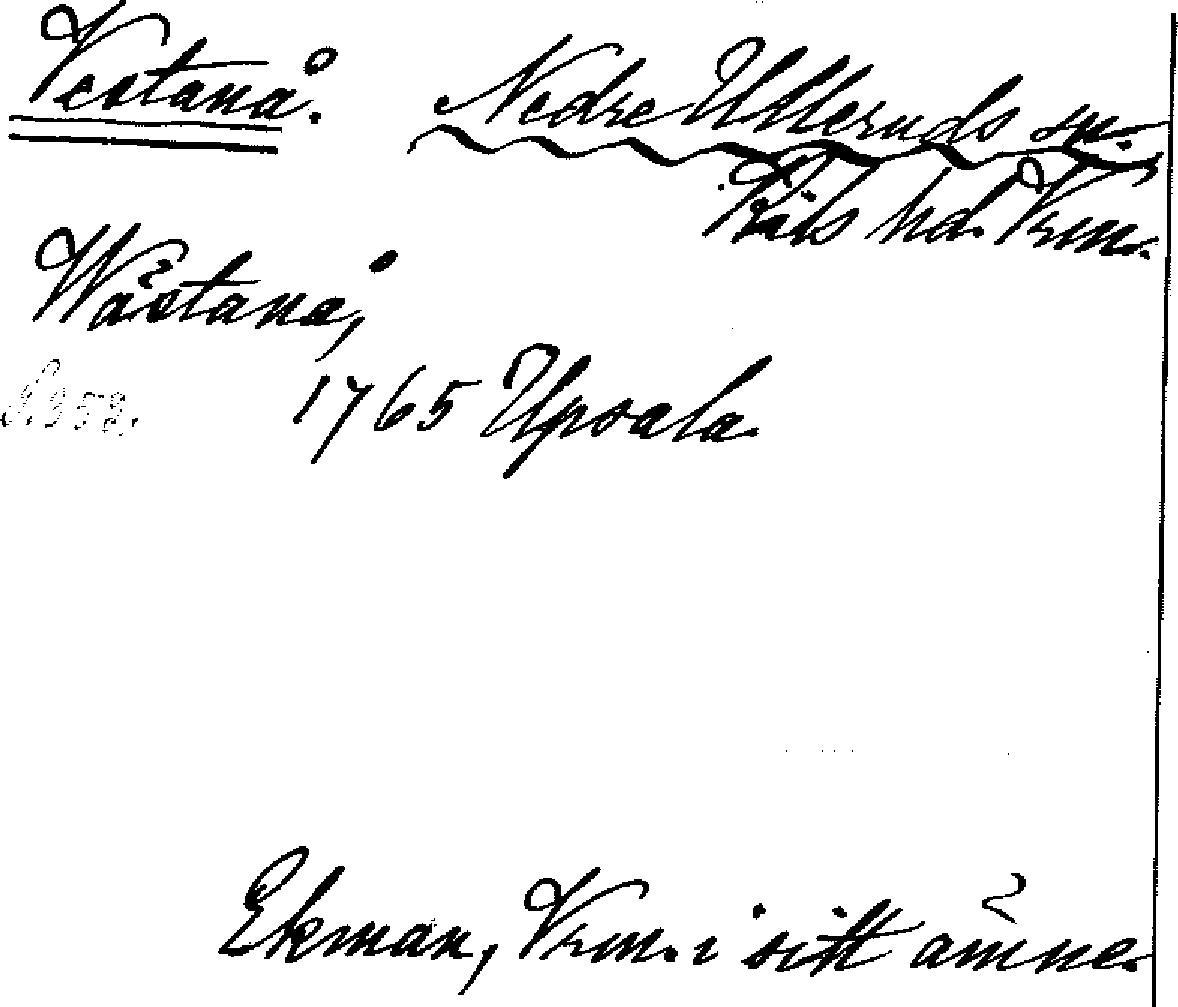 Vestanå. Nedre Ulleruds sn.
Kils hd. Vrm.
Wästanå,
1765 Upsala.
Ekman, Vrm. i sitt ämne.